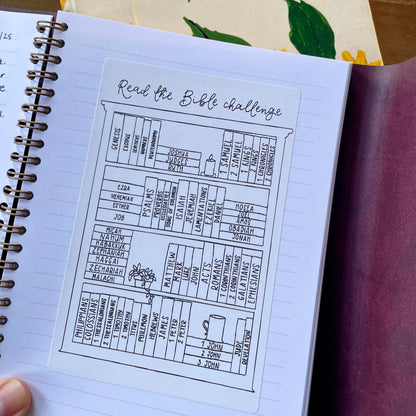 /25
Read the Bible challenge
GENESIS
EXODUS
LEVITICUS
NUMBERS
DEUTERONOMY
JOSHUA
JUDGES
RUTH
1 SAMUEL
2 SAMUEL
1 KINGS
2 KINGS
1 CHRONICLES
2 CHRONICLES
EZRA
NEHEMIAH
ESTHER
JOB
PSALMS
PROVERBS
ECCLESIASTES
SONG OF SOLOMON
ISAIAH
JEREMIAH
LAMENTATIONS
EZEKIEL
DANIEL
HOSEA
JOEL
AMOS
OBADIAH
JONAH
MICAH
NAHUM
HABAKKUK
ZEPHANIAH
HAGGAI
ZECHARIAH
MALACHI
MATTHEW
MARK
LUKE
JOHN
ACTS
ROMANS
1 CORINTHIANS
2 CORINTHIANS
GALATIANS
EPHESIANS
PHILIPPIANS
COLOSSIANS
1 THESSALONIANS
2 THESSALONIANS
1 TIMOTHY
2 TIMOTHY
TITUS
PHILEMON
HEBREWS
JAMES
1 PETER
2 PETER
1 JOHN
2 JOHN
3 JOHN
JUDE
REVELATION